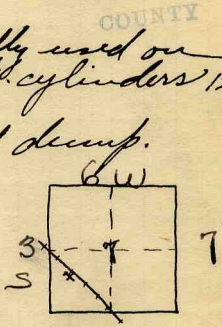 COUNTY
lly used on
cylinders
dump.
6 W
3 7 7
S